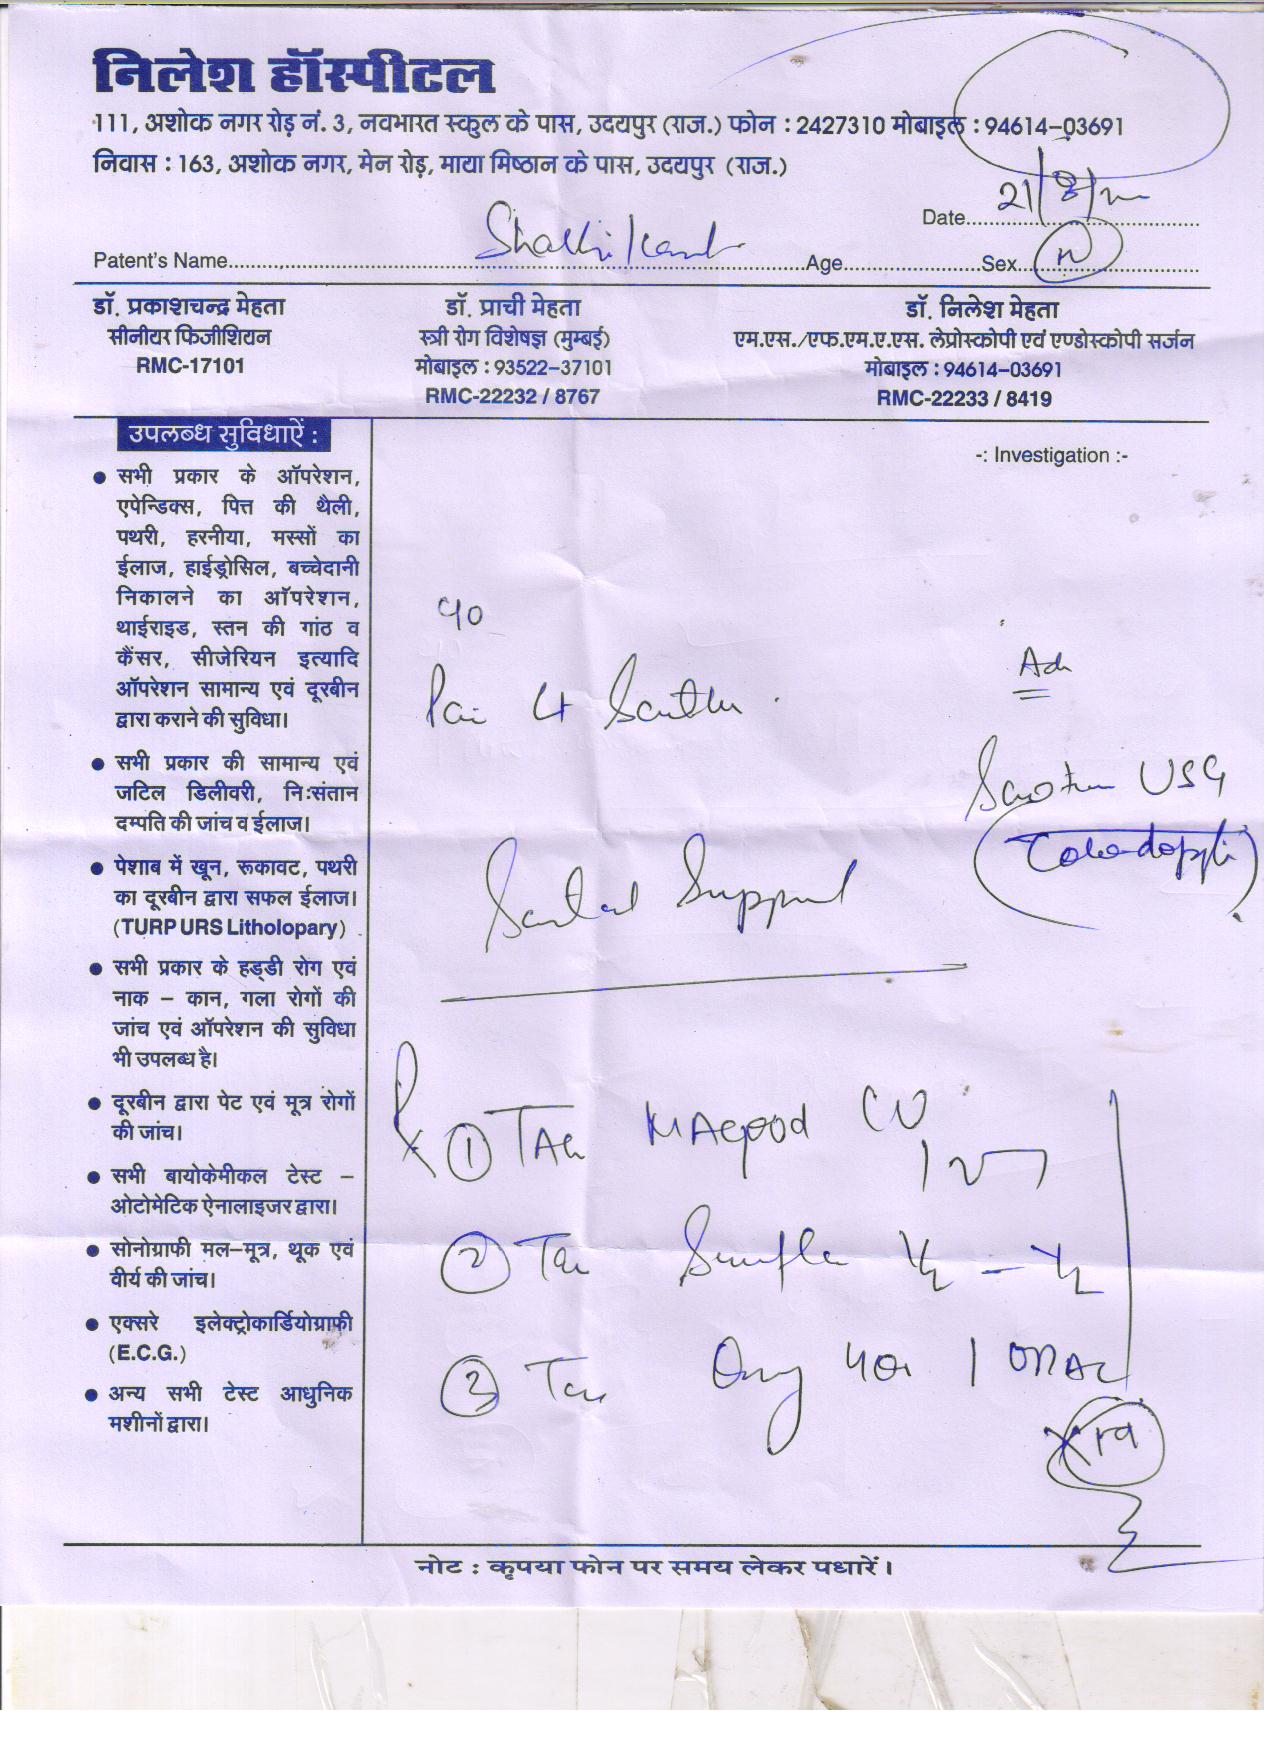 निलेश हॉस्पीटल
111, अशोक नगर रोड़ नं. 3, नवभारत स्कुल के पास, उदयपुर (राज.) फोन : 2427310 मोबाइल : 94614-03691
निवास : 163, अशोक नगर, मेन रोड़, माया मिष्ठान के पास, उदयपुर (राज.)
Date
Patent's Name Age Sex
डॉ. प्रकाशचन्द्र मेहता
सीनीयर फिजीशियन
RMC-17101
डॉ. प्राची मेहता
स्त्री रोग विशेषज्ञ (मुम्बई)
मोबाइल : 93522-37101
RMC-22232 / 8767
डॉ. निलेश मेहता
एम.एस./एफ.एम.ए.एस. लेप्रोस्कोपी एवं एण्डोस्कोपी सर्जन
मोबाइल : 94614-03691
RMC-22233 / 8419
उपलब्ध सुविधाऐं :
• सभी प्रकार के ऑपरेशन,
एपेन्डिक्स, पित्त की थैली,
पथरी, हरनीया, मस्सों का
ईलाज, हाईड्रोसिल, बच्चेदानी
निकालने का ऑपरेशन,
थाईराइड, स्तन की गांठ व
कैंसर, सीजेरियन इत्यादि
ऑपरेशन सामान्य एवं दूरबीन
द्वारा कराने की सुविधा।
• सभी प्रकार की सामान्य एवं
जटिल डिलीवरी, निःसंतान
दम्पति की जांच व ईलाज।
• पेशाब में खून, रूकावट, पथरी
का दूरबीन द्वारा सफल ईलाज।
(TURP URS Litholopary)
• सभी प्रकार के हड्डी रोग एवं
नाक – कान, गला रोगों की
जांच एवं ऑपरेशन की सुविधा
भी उपलब्ध है।
• दूरबीन द्वारा पेट एवं मूत्र रोगों
की जांच।
• सभी बायोकेमीकल टेस्ट –
ओटोमेटिक ऐनालाइजर द्वारा।
• सोनोग्राफी मल–मूत्र, थूक एवं
वीर्य की जांच।
• एक्सरे इलेक्ट्रोकार्डियोग्राफी
(E.C.G.)
• अन्य सभी टेस्ट आधुनिक
मशीनों द्वारा।
-: Investigation :-
Adv
USG
Support
① TAB
②
③
नोट : कृपया फोन पर समय लेकर पधारें।